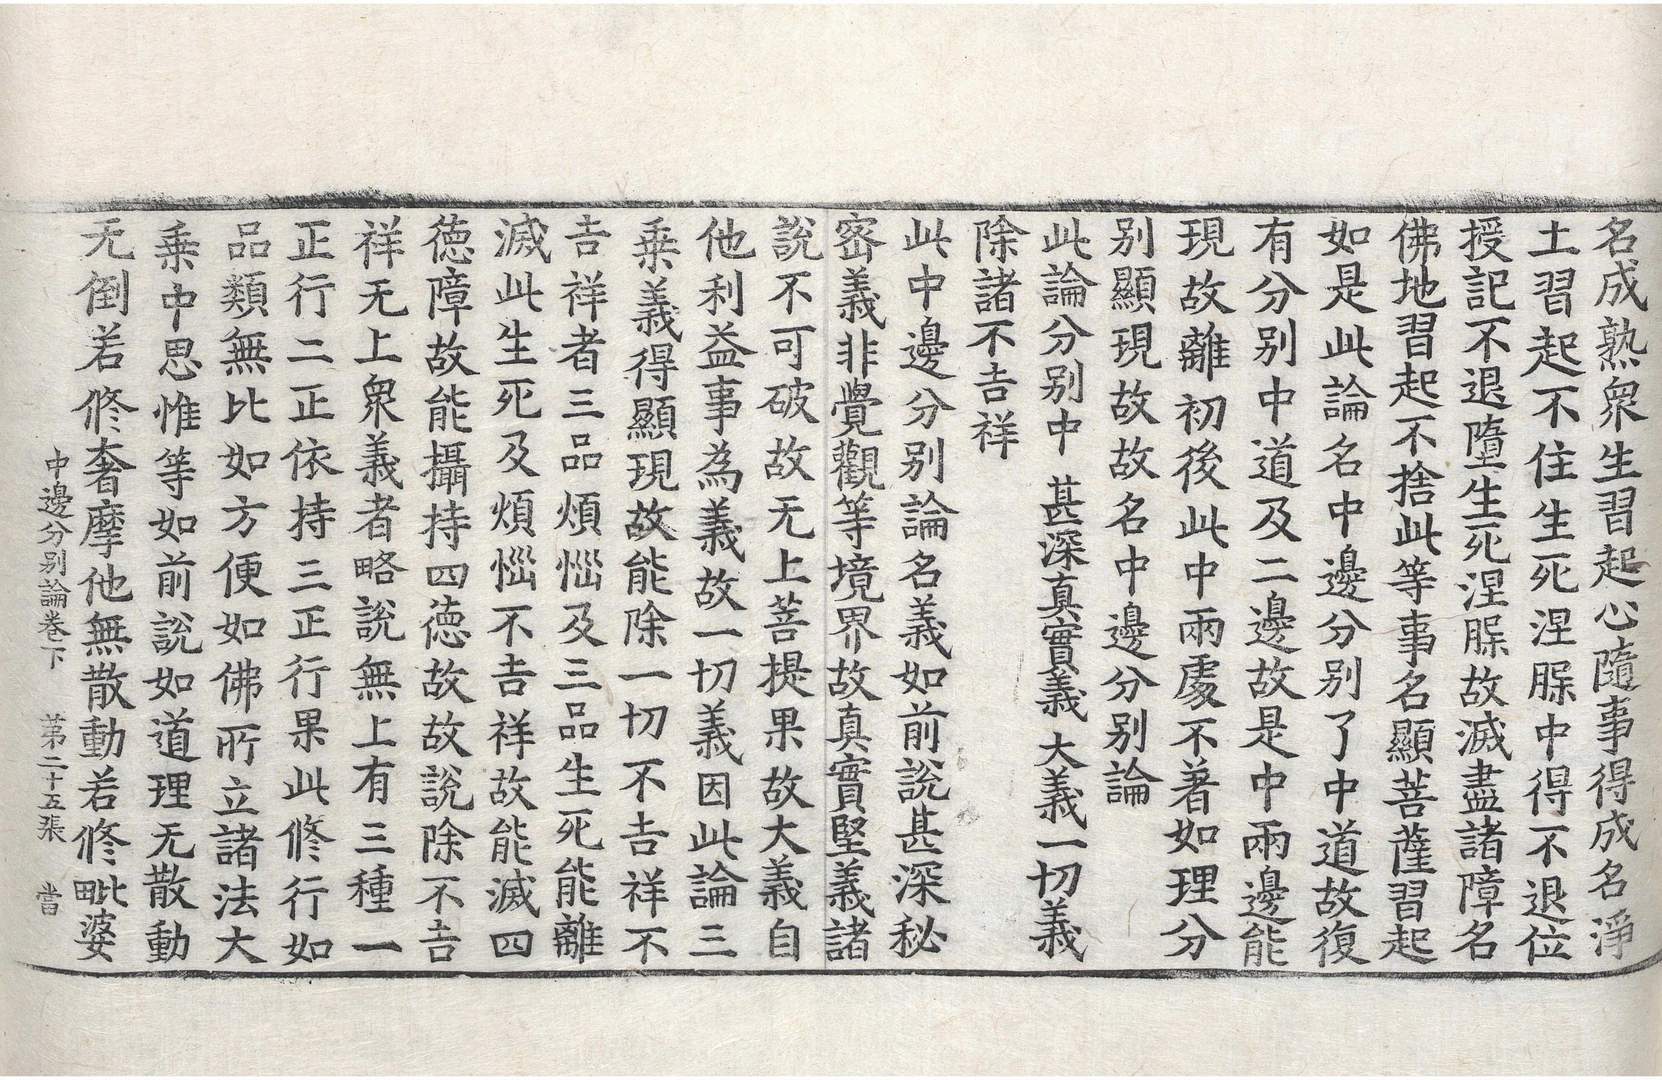 名成熟衆生習起心隨事得成名淨
土習起不住生死涅槃中得不退位
授記不退墮生死涅槃故滅盡諸障名
佛地習起不捨此等事名顯菩薩習起
如是此論名中邊分別了中道故復
有分別中道及二邊故是中兩邊能
現故離初後此中兩處不著如理分
別顯現故故名中邊分別論
此論分別中　甚深真實義　大義一切義
除諸不吉祥
此中邊分別論名義如前說甚深秘
密義非覺觀等境界故真實堅義諸
說不可破故无上菩提果故大義自
他利益事為義故一切義因此論三
乗義得顯現故能除一切不吉祥不
吉祥者三品煩惱及三品生死能離
滅此生死及煩惱不吉祥故能滅四
德障故能攝持四德故故說除不吉
祥无上衆義者略說無上有三種一
正行二正依持三正行果此修行如
品類無比如方便如佛所立諸法大
乗中思惟等如前說如道理无散動
无倒若修奢摩他無散動若修毗婆
中邊分別論卷下　第二十五張　當